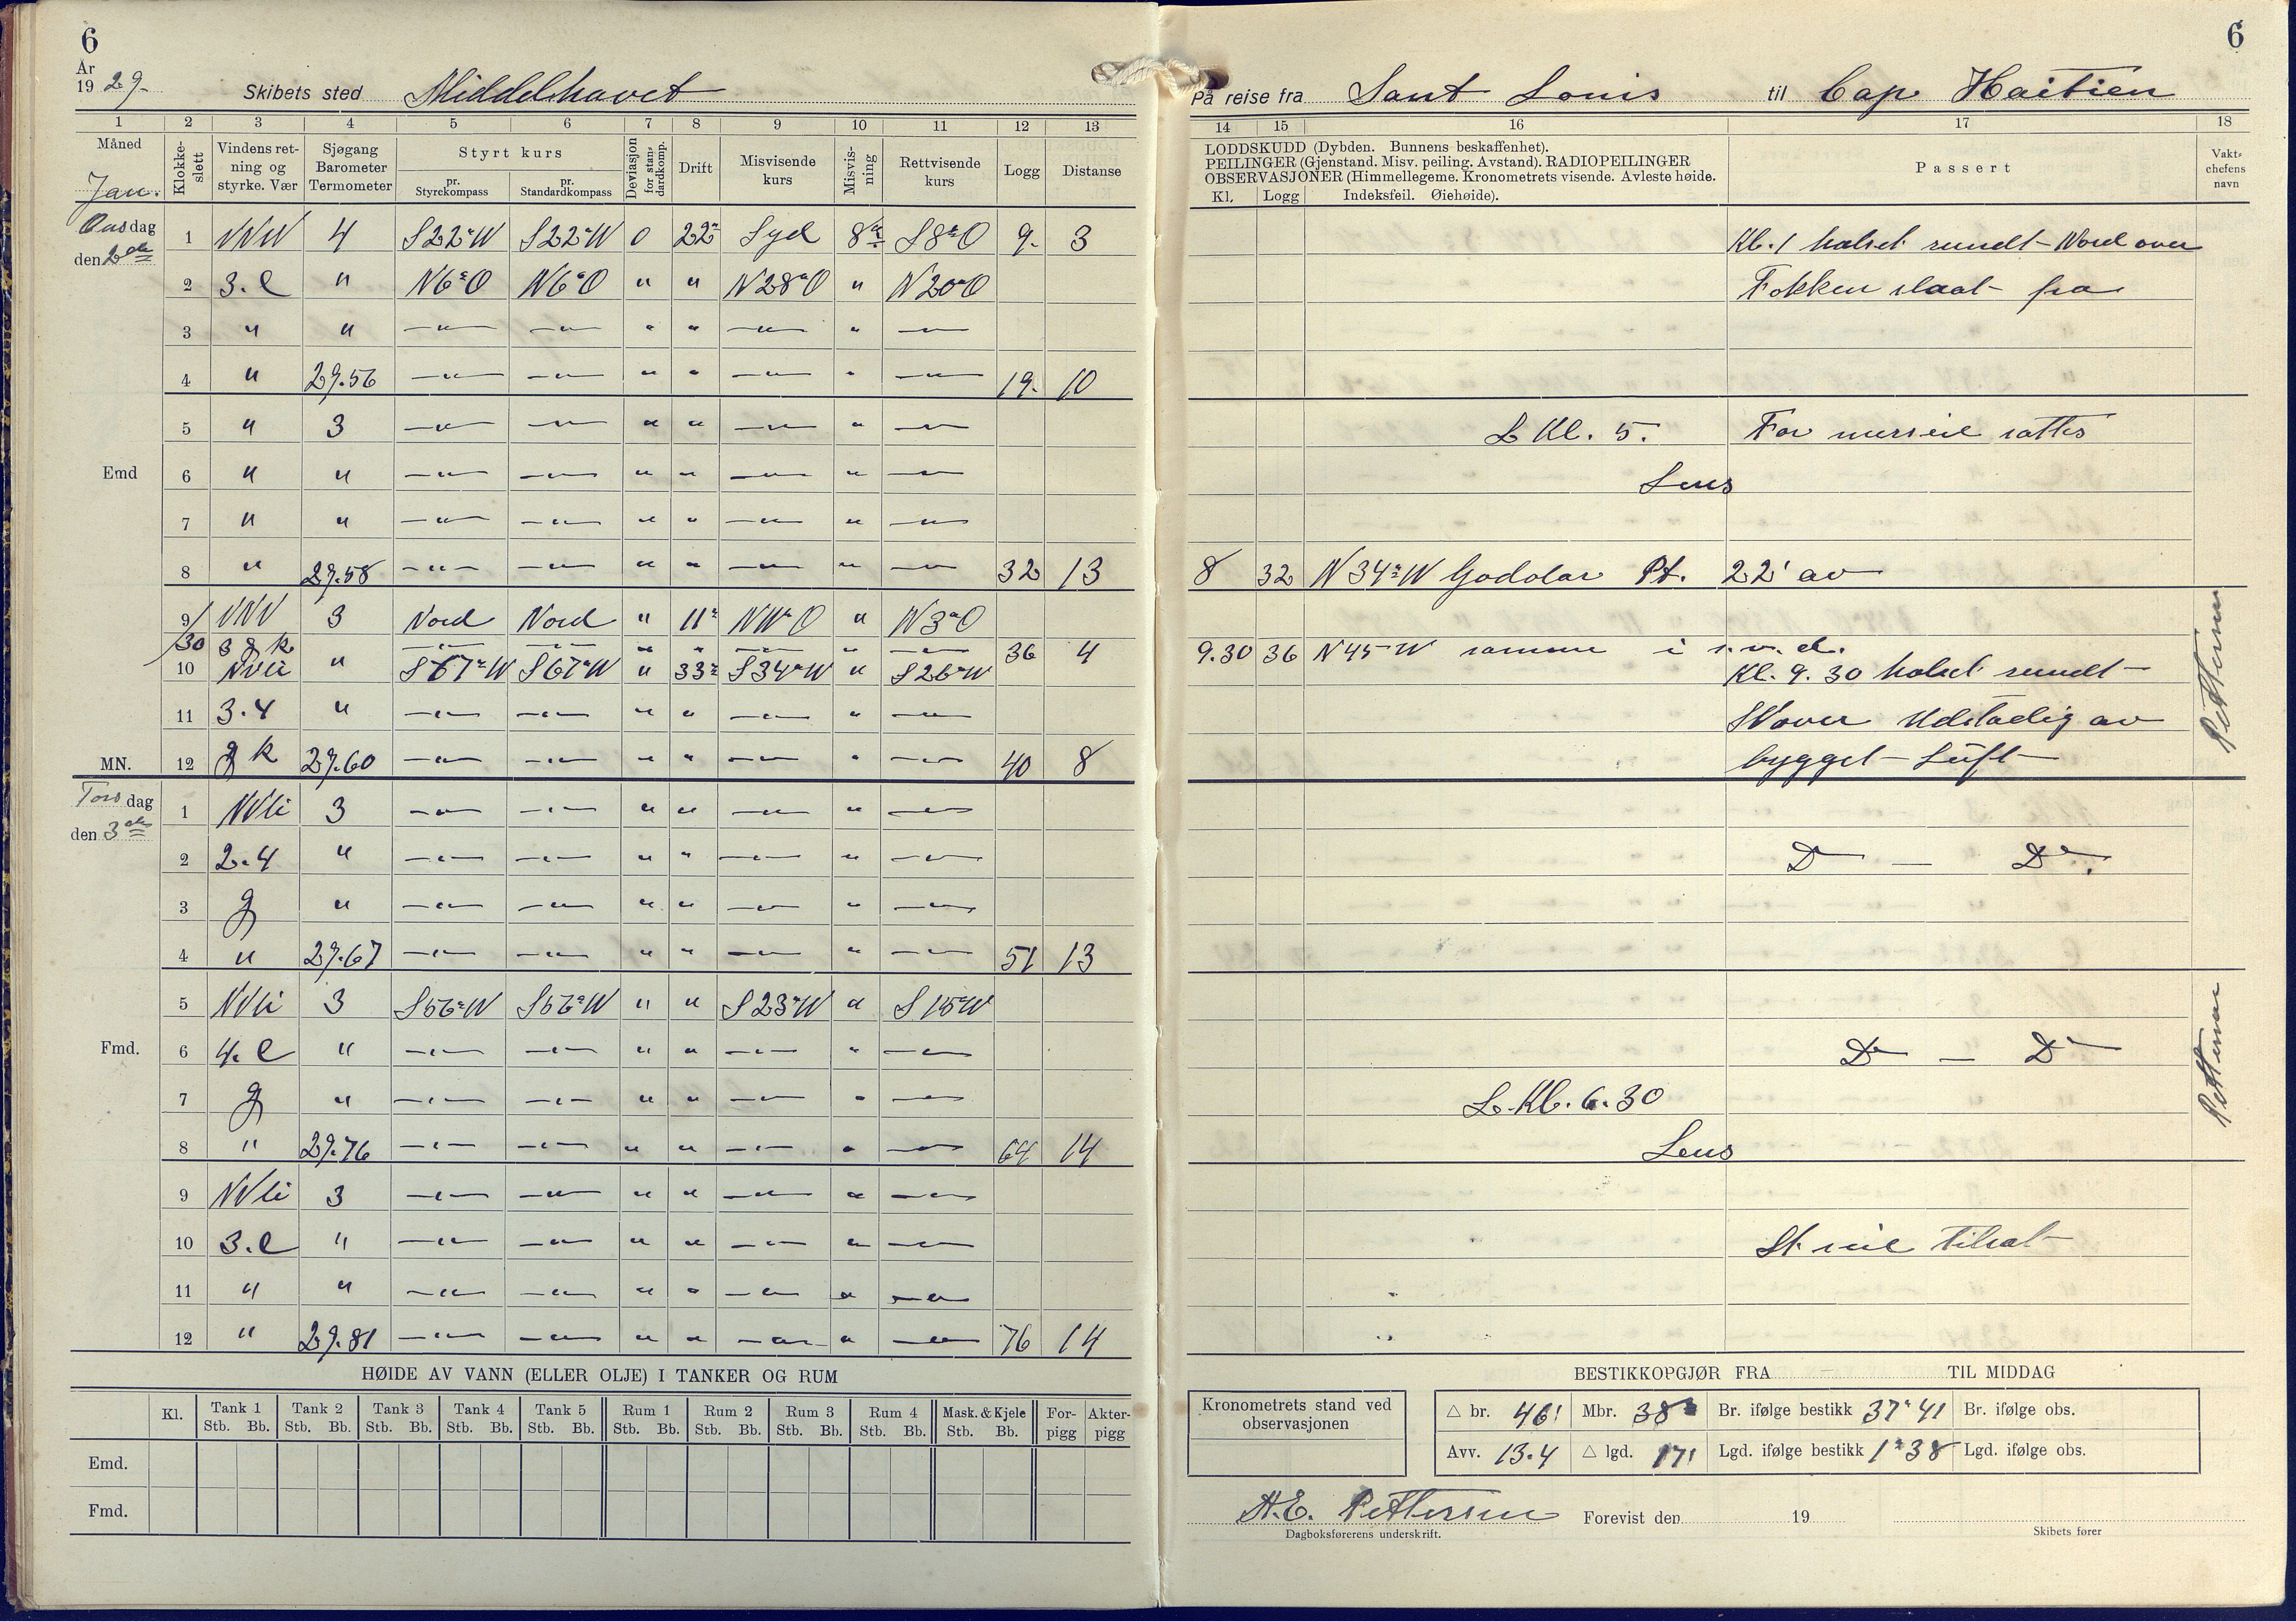 6
År
1929. Skibets sted Middelhavet
1 2 3 4 5 6 7 8 9 10 11 12 13
Måned Jan. Klokke-slett Vindens ret-ning og styrke. Vær Sjøgang Barometer Termometer Styrt kurs pr. Styrekompass pr. Standardkompass Deviasjon for stan-dardkomp. Drift Misvisende kurs Misvis-ning Rettvisende kurs Logg Distanse
Onsdag den 2de
1 VNV 4 S22°W S22°W 0 22° Syd 8° S8°O 9. 3
2 3.l " N6°O N6°O " " N28°O " N20°O
3 " " —"— —"— " " —"— " —"—
4 " 29.56 —"— —"— " " —"— " —"— 19. 10
5 " 3 —"— —"— " " —"— " —"—
Emd 6 " " —"— —"— " " —"— " —"—
7 " " —"— —"— " " —"— " —"—
8 " 29.58 —"— —"— " " —"— " —"— 32 13
9/30 VNV 3 Nord Nord " 11° N11°O " N3°O
3 g k —"— —"— " " —"— " —"— 36 4
10 NVli " S67°W S67°W " 33° S34°W " S26°W
11 3.4 " —"— —"— " " —"— " —"—
MN. 12 g k 29.60 —"— —"— " " —"— " —"— 40 8
Torsdag den 3de
1 NVli 3 —"— —"— " " —"— " —"—
2 2.4 " —"— —"— " " —"— " —"—
3 g " —"— —"— " " —"— " —"—
4 " 29.67 —"— —"— " " —"— " —"— 51 13
5 NVli 3 S56°W S56°W " " S23°W " S15°W
Fmd. 6 4.l " —"— —"— " " —"— " —"—
7 g " —"— —"— " " —"— " —"—
8 " 29.76 —"— —"— " " —"— " —"— 64 14
9 NVli 3 —"— —"— " " —"— " —"—
10 3.l " —"— —"— " " —"— " —"—
11 " " —"— —"— " " —"— " —"—
12 " 29.81 —"— —"— " " —"— " —"— 76 14
HØIDE AV VANN (ELLER OLJE) I TANKER OG RUM
Kl. Tank 1 Tank 2 Tank 3 Tank 4 Tank 5 Rum 1 Rum 2 Rum 3 Rum 4 Mask. & Kjele For-pigg Akter-pigg
Stb. Bb. Stb. Bb. Stb. Bb. Stb. Bb. Stb. Bb. Stb. Bb. Stb. Bb. Stb. Bb. Stb. Bb. Stb. Bb.
Emd.
Fmd.
6
På reise fra Sant Louis til Cap Haitien
14 15 16 17 18
LODDSKUDD (Dybden. Bunnens beskaffenhet).
PEILINGER (Gjenstand. Misv. peiling. Avstand). RADIOPEILINGER
OBSERVASJONER (Himmellegeme. Kronometrets visende. Avleste høide.
Kl. Logg Indeksfeil. Øiehøide).
Passert
Vakt-chefens navn
Kl. 1 halset rundt Nord over
Fokken slaat fra
L Kl. 5. For merseil sattes
Lens
8 32 N34°W Godolar Pt. 22' av
9.30 36 N45°W samme i s.v.d.
Kl. 9.30 halset rundt
SVover Ustadig av
bygget Luft
Pettersen
Do — Do.
Do — Do
L. Kl. 6.30
Lens
Pettersen
St seil tilsat
BESTIKKOPGJØR FRA TIL MIDDAG
Kronometrets stand ved observasjonen
△ br. 46' Mbr. 38° Br. ifølge bestikk 37°41 Br. ifølge obs.
Avv. 13.4 △ lgd. 17' Lgd. ifølge bestikk 1°38 Lgd. ifølge obs.
A.E. Pettersen Forevist den 19
Dagboksførerens underskrift. Skibets fører